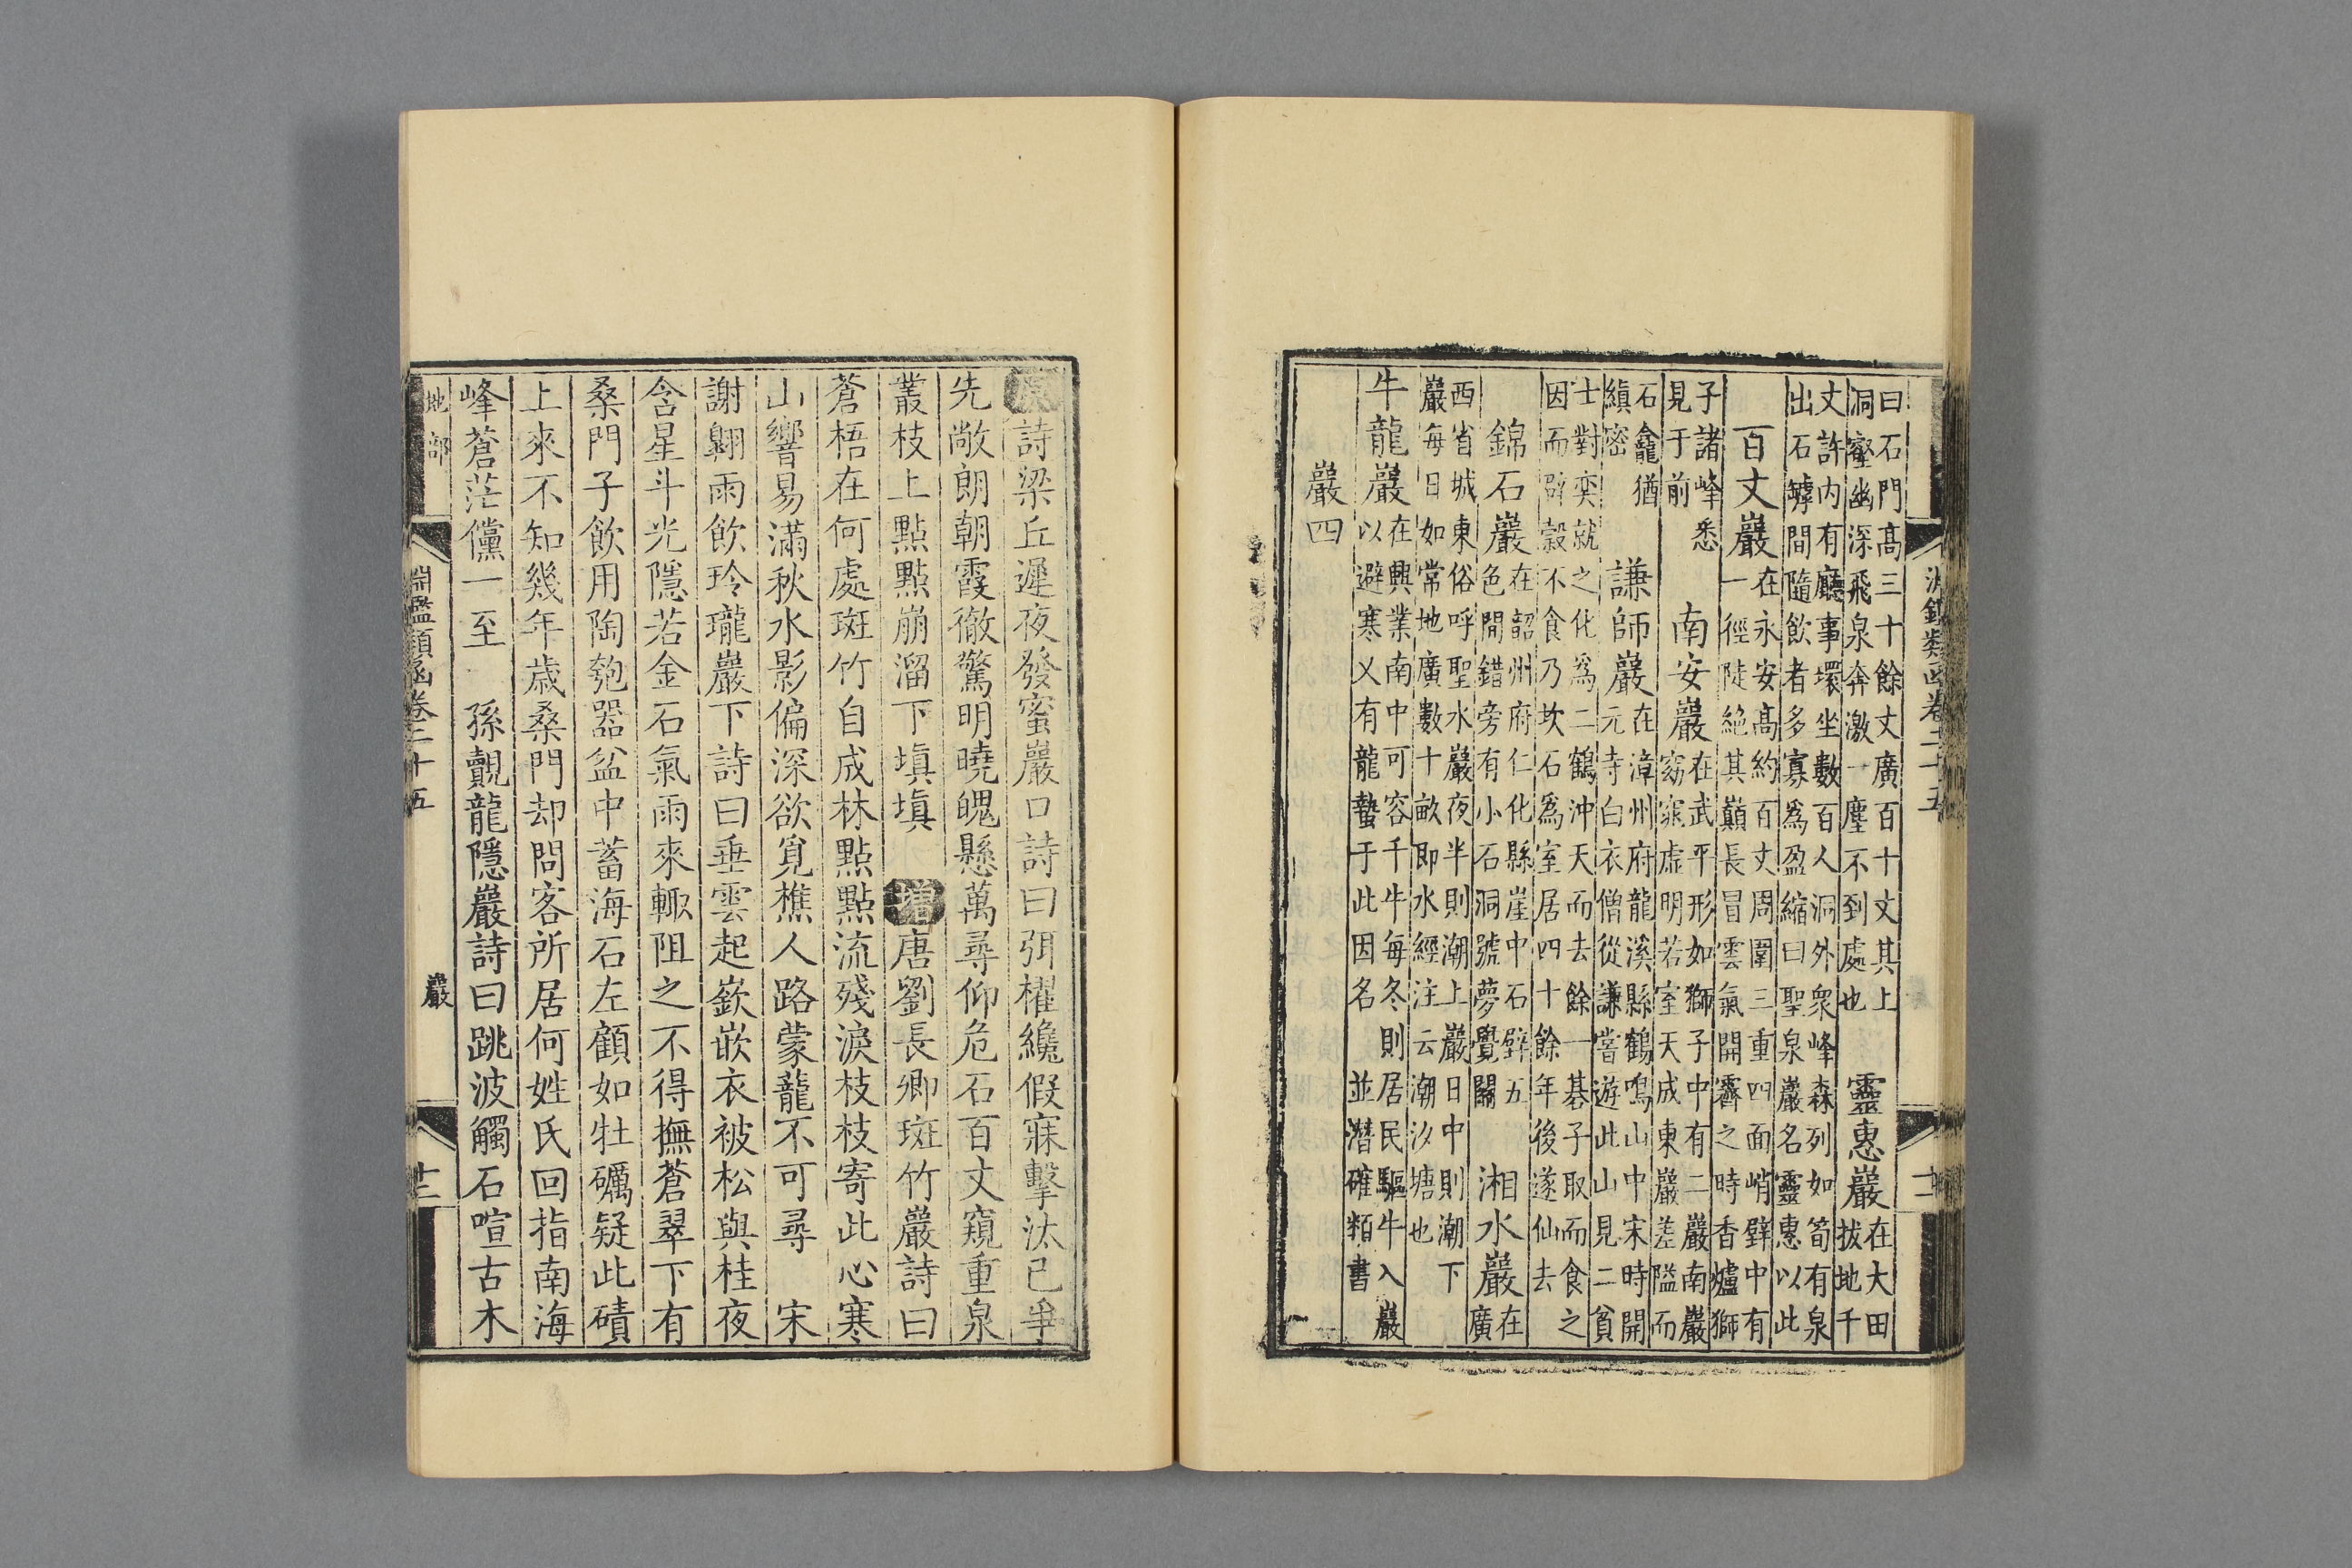 淵鑑類函卷二十五
十二
曰石門高三十餘丈廣百十丈其上
洞壑幽深飛泉奔激一塵不到處也
靈惠巖
在大田
拔地千
丈許内有廳事環坐數百人洞外衆峰森列如筍有泉
出石罅間隨飲者多寡爲盈縮曰聖泉巖名靈惠以此
百丈巖
在永安高約百丈周圍三重四面峭壁中有
一徑陡絶其巔長冒雲氣開霽之時香爐獅
子諸峰悉
見于前
南安巖
在武平形如獅子中有二巖南巖
窈窱虛明若室天成東巖差隘而
石龕猶
縝密
謙師巖
在漳州府龍溪縣鶴鳴山中宋時開
元寺白衣僧從謙嘗遊此山見二貧
士對奕就之化爲二鶴沖天而去餘一碁子取而食之
因而辟穀不食乃坎石爲室居四十餘年後遂仙去
錦石巖
在韶州府仁化縣崖中石壁五
色間錯旁有小石洞號夢覺關
湘水巖
在
廣
西省城東俗呼聖水巖夜半則潮上巖日中則潮下
巖每日如常地廣數十畝即水經注云潮汐塘也
牛龍巖
在興業南中可容千牛每冬則居民驅牛入巖
以避寒乂有龍蟄于此因名 並潛確類書
巖四
原詩梁丘遲夜發蜜巖口詩曰弭櫂纔假寐擊汰已爭
先敞朗朝霞徹驚明曉魄懸萬尋仰危石百丈窺重泉
叢枝上點點崩溜下塡塡 增唐劉長卿斑竹巖詩曰
蒼梧在何處斑竹自成林點點流殘淚枝枝寄此心寒
山響易滿秋水影偏深欲覓樵人路蒙蘢不可尋 宋
謝翱雨飲玲瓏巖下詩曰垂雲起嶔嵌衣被松與桂夜
含星斗光隱若金石氣雨來輙阻之不得撫蒼翠下有
桑門子飲用陶匏器盆中蓄海石左顧如牡礪疑此磧
上來不知幾年歲桑門却問客所居何姓氏回指南海
峰蒼茫儻一至 孫覿龍隱巖詩曰跳波觸石喧古木
地部
淵鑑類函卷二十五
巖
十三